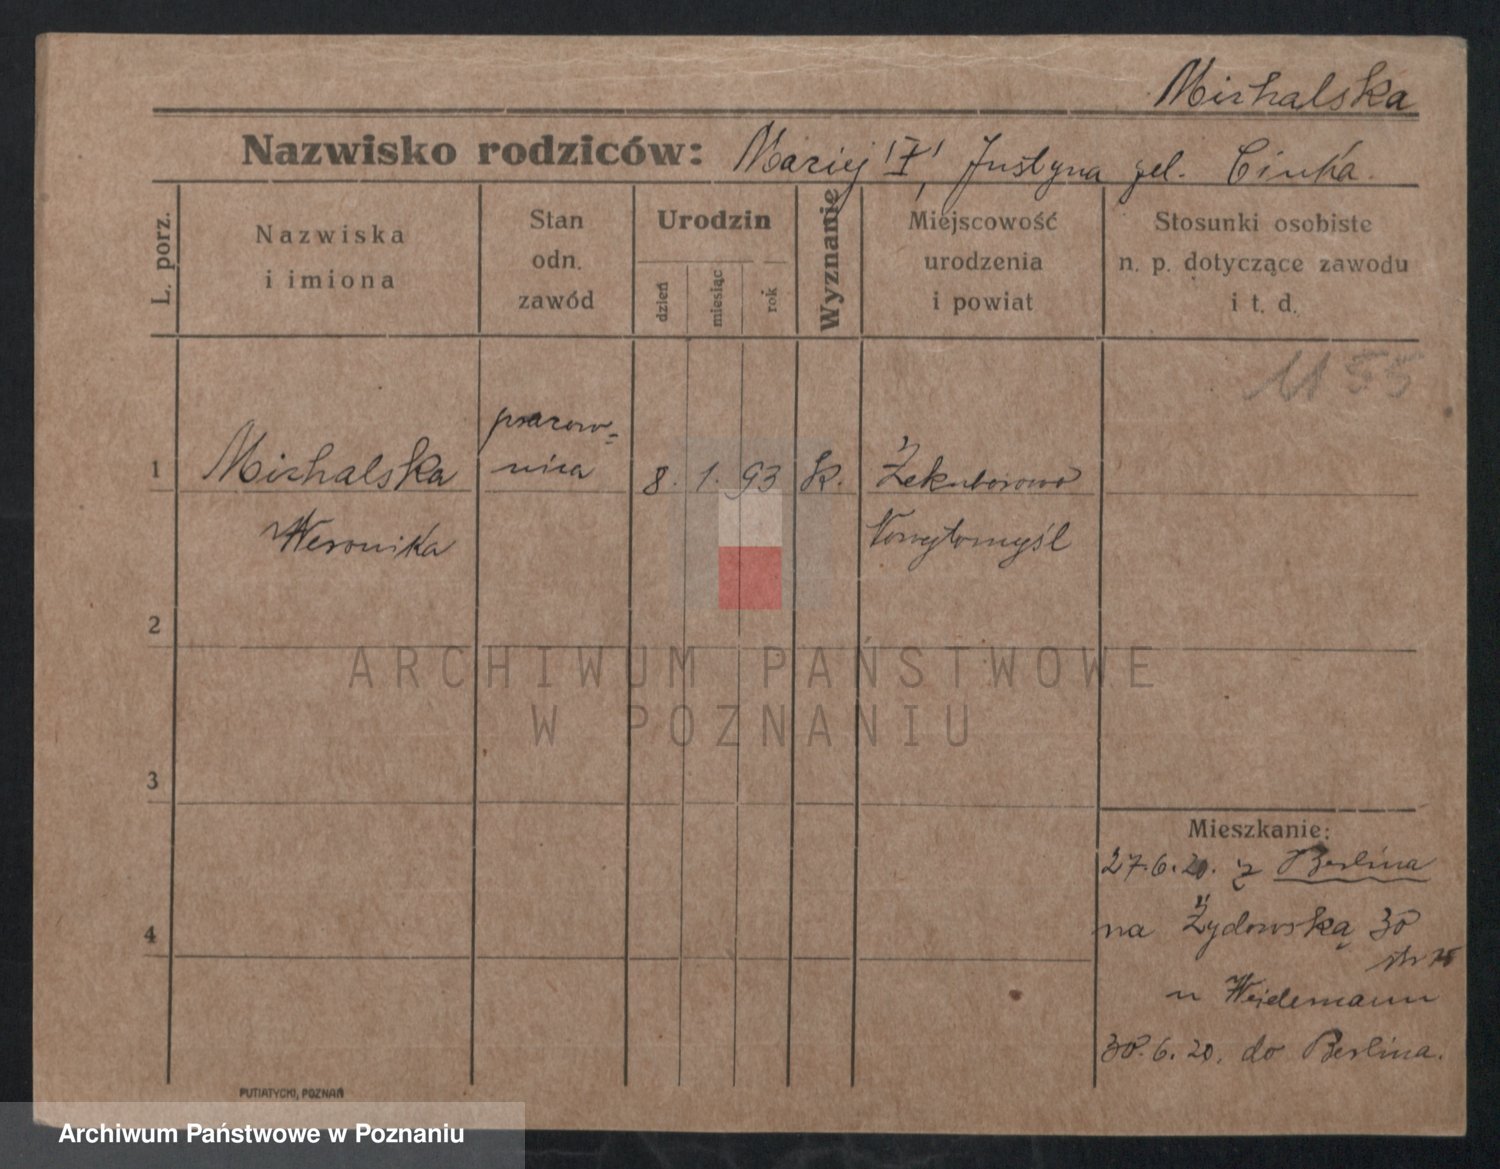 Michalska
Nazwisko rodziców: Maciej Justyna gel. Cinka.
L. porz.
Nazwiska
i imiona
Stan
odn.
zawód
Urodzin
dzień
miesiąc
rok
Wyznanie
Miejscowość
urodzenia
i powiat
Stosunki osobiste
n. p. dotyczące zawodu
i t. d.
1
Michalska
Weronika
pracow=
nica
8. 1. 93
k.
Żekuborowo
Nowytomyśl
2
3
4
Mieszkanie:
27.6.20. z Berlina
na Żydowską 30
u Weidemann
30.6.20. do Berlina.
PUTIATYCKI, POZNAŃ
ARCHIWUM PAŃSTWOWE
W POZNANIU
Archiwum Państwowe w Poznaniu